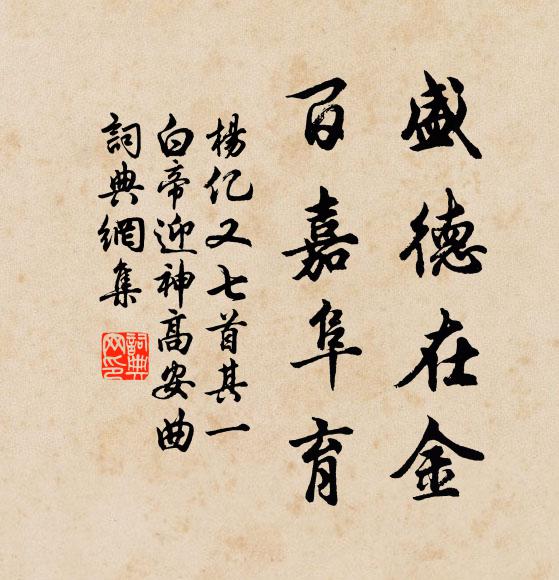 盛德在金
百嘉阜育
楊億又七首其一
白帝迎神高安曲
詞典網集
詞典
网印